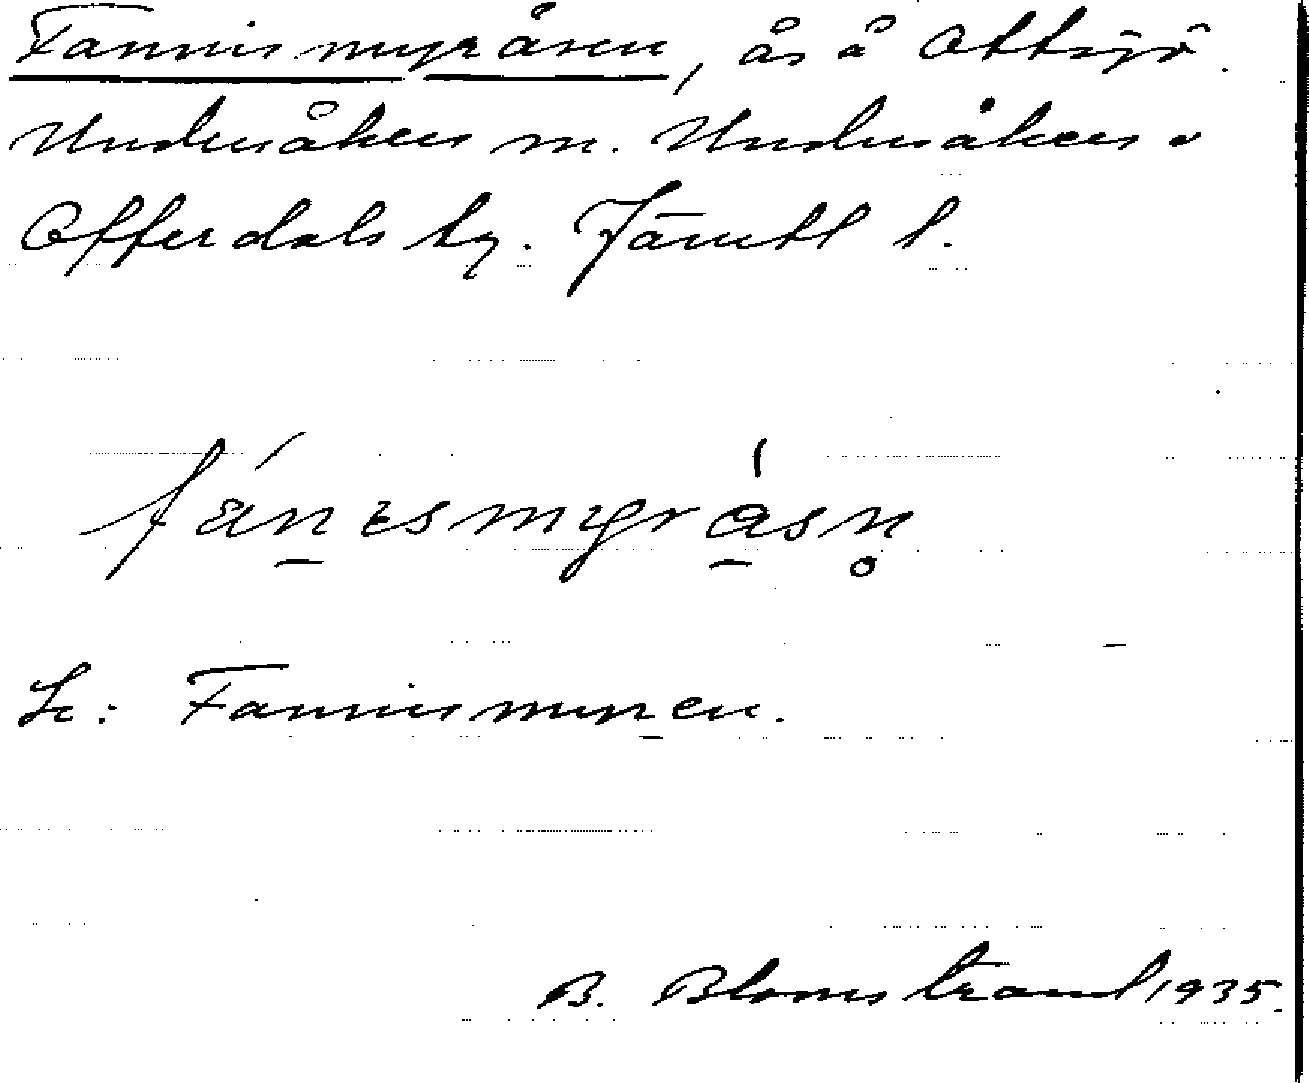 Fannismyråsen, ås å Ottsjö.
Undersåkers sn. Undersåkers o
Offerdals tg. Jämtl l.
fánɪsmyråsn̥
Se: Fannismyren.
B. Blomstrand 1935.